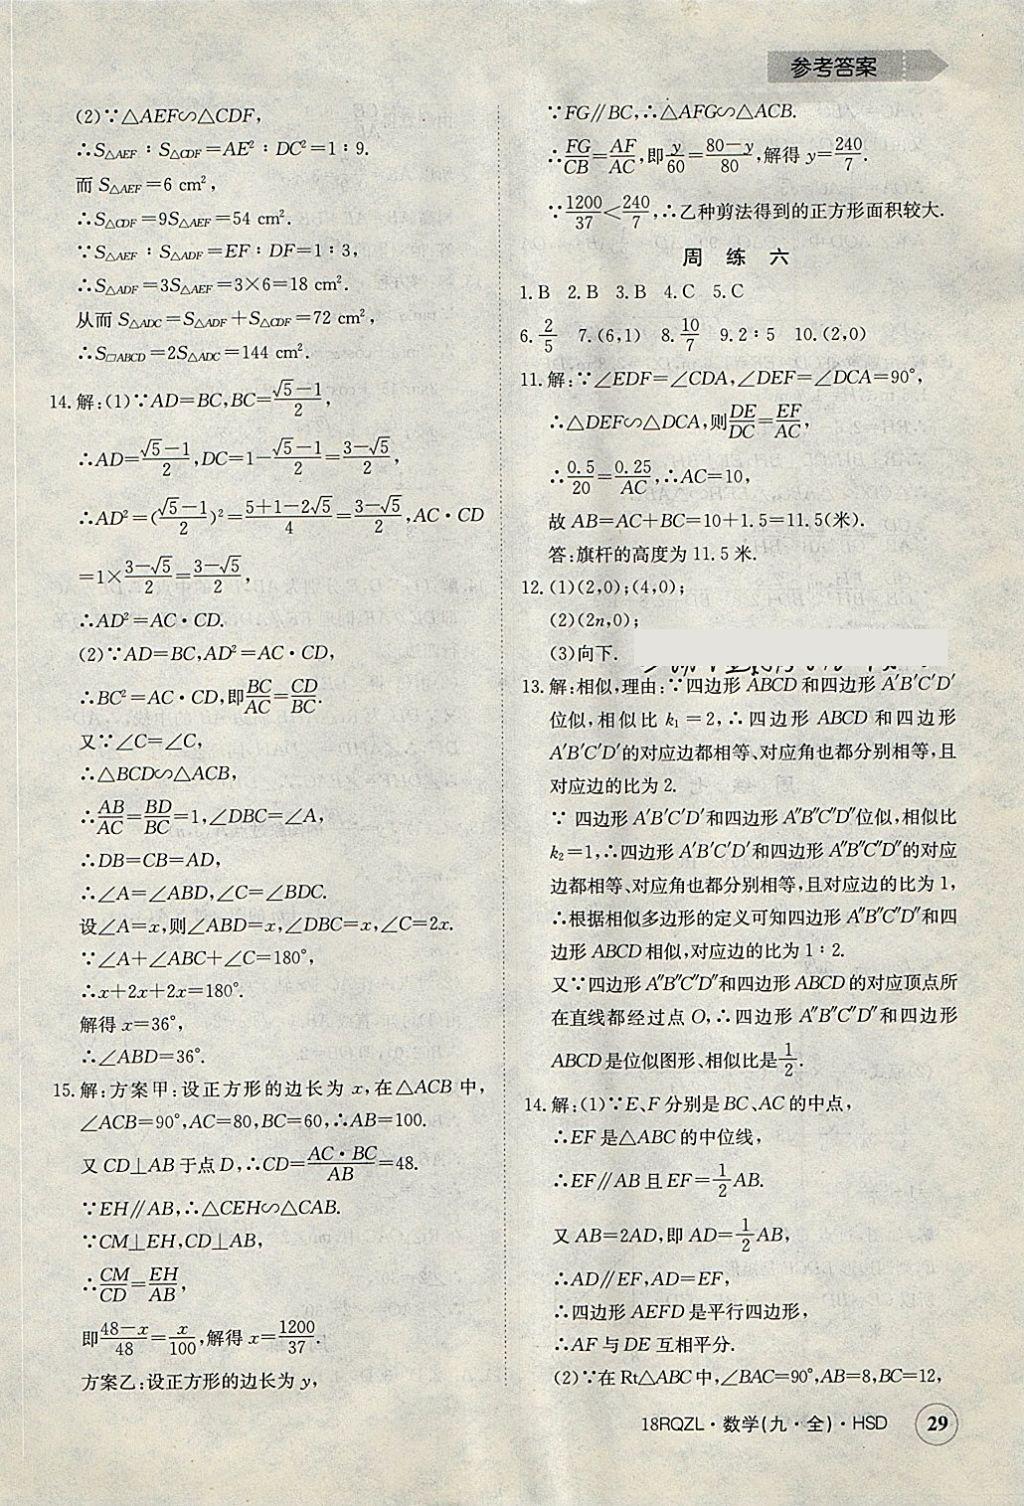 参考答案
(2)∵△AEF∽△CDF,
∴S△AEF∶S△CDF=AE²∶DC²=1∶9.
而 S△AEF=6 cm²,
∴S△CDF=9S△AEF=54 cm².
∵S△AEF∶S△ADF=EF∶DF=1∶3,
∴S△ADF=3S△AEF=3×6=18 cm².
从而 S△ADC=S△ADF+S△CDF=72 cm²,
∴S□ABCD=2S△ADC=144 cm².
14.解:(1)∵AD=BC,BC=(√5-1)/2,
∴AD=(√5-1)/2,DC=1-(√5-1)/2=(3-√5)/2,
∴AD²=((√5-1)/2)²=(5+1-2√5)/4=(3-√5)/2,AC·CD
=1×(3-√5)/2=(3-√5)/2,
∴AD²=AC·CD.
(2)∵AD=BC,AD²=AC·CD,
∴BC²=AC·CD,即BC/AC=CD/BC.
又∵∠C=∠C,
∴△BCD∽△ACB,
∴AB/AC=BD/BC=1,∠DBC=∠A,
∴DB=CB=AD,
∴∠A=∠ABD,∠C=∠BDC.
设∠A=x,则∠ABD=x,∠DBC=x,∠C=2x.
∵∠A+∠ABC+∠C=180°,
∴x+2x+2x=180°.
解得 x=36°,
∴∠ABD=36°.
15.解:方案甲:设正方形的边长为 x,在△ACB 中,
∠ACB=90°,AC=80,BC=60,∴AB=100.
又 CD⊥AB 于点 D,∴CD=AC·BC/AB=48.
∵EH∥AB,∴△CEH∽△CAB.
∵CM⊥EH,CD⊥AB,
∴CM/CD=EH/AB,
即(48-x)/48=x/100,解得 x=1200/37.
方案乙:设正方形的边长为 y,
∵FG∥BC,∴△AFG∽△ACB.
∴FG/CB=AF/AC,即y/60=(80-y)/80,解得 y=240/7.
∵1200/37<240/7,∴乙种剪法得到的正方形面积较大.
周 练 六
1.B 2.B 3.B 4.C 5.C
6.2/5 7.(6,1) 8.10/7 9.2∶5 10.(2,0)
11.解:∵∠EDF=∠CDA,∠DEF=∠DCA=90°,
∴△DEF∽△DCA,则DE/DC=EF/AC,
∴0.5/20=0.25/AC,∴AC=10,
故 AB=AC+BC=10+1.5=11.5(米).
答:旗杆的高度为 11.5 米.
12.(1)(2,0);(4,0);
(2)(2n,0);
(3)向下.
13.解:相似,理由:∵四边形 ABCD 和四边形 A′B′C′D′
位似,相似比 k₁=2,∴四边形 ABCD 和四边形
A′B′C′D′的对应边都相等、对应角也都分别相等,且
对应边的比为 2.
∵ 四边形 A′B′C′D′和四边形 A″B″C″D″位似,相似比
k₂=1,∴四边形 A′B′C′D′和四边形 A″B″C″D″的对应
边都相等、对应角也都分别相等,且对应边的比为 1,
∴根据相似多边形的定义可知四边形 A″B″C″D″和四
边形 ABCD 相似,对应边的比为 1∶2.
又∵四边形 A″B″C″D″和四边形 ABCD 的对应顶点所
在直线都经过点 O,∴四边形 A″B″C″D″和四边形
ABCD是位似图形、相似比是1/2.
14.解:(1)∵E、F 分别是 BC、AC 的中点,
∴EF 是△ABC 的中位线,
∴EF∥AB 且 EF=1/2AB.
又 AB=2AD,即 AD=1/2AB,
∴AD∥EF,AD=EF,
∴四边形 AEFD 是平行四边形,
∴AF 与 DE 互相平分.
(2)∵在 Rt△ABC 中,∠BAC=90°,AB=8,BC=12,
18RQZL·数学(九·全)·HSD 29